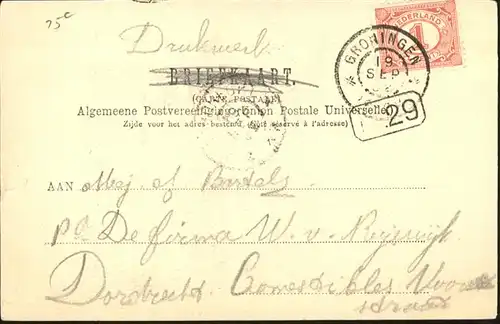 75c
Drukwerk
NEDERLAND
1
GRONINGEN
19
SEP
BRIEFKAART.
(CARTE POSTALE)
29
Algemeene Postvereeniging Union Postale Universelle
Zijde voor het adres bestemd. (Côté réservé à l'adresse)
AAN Mej. of Bartals
pa De firma W. v.
Dordrecht Comestibles Voor-
straat